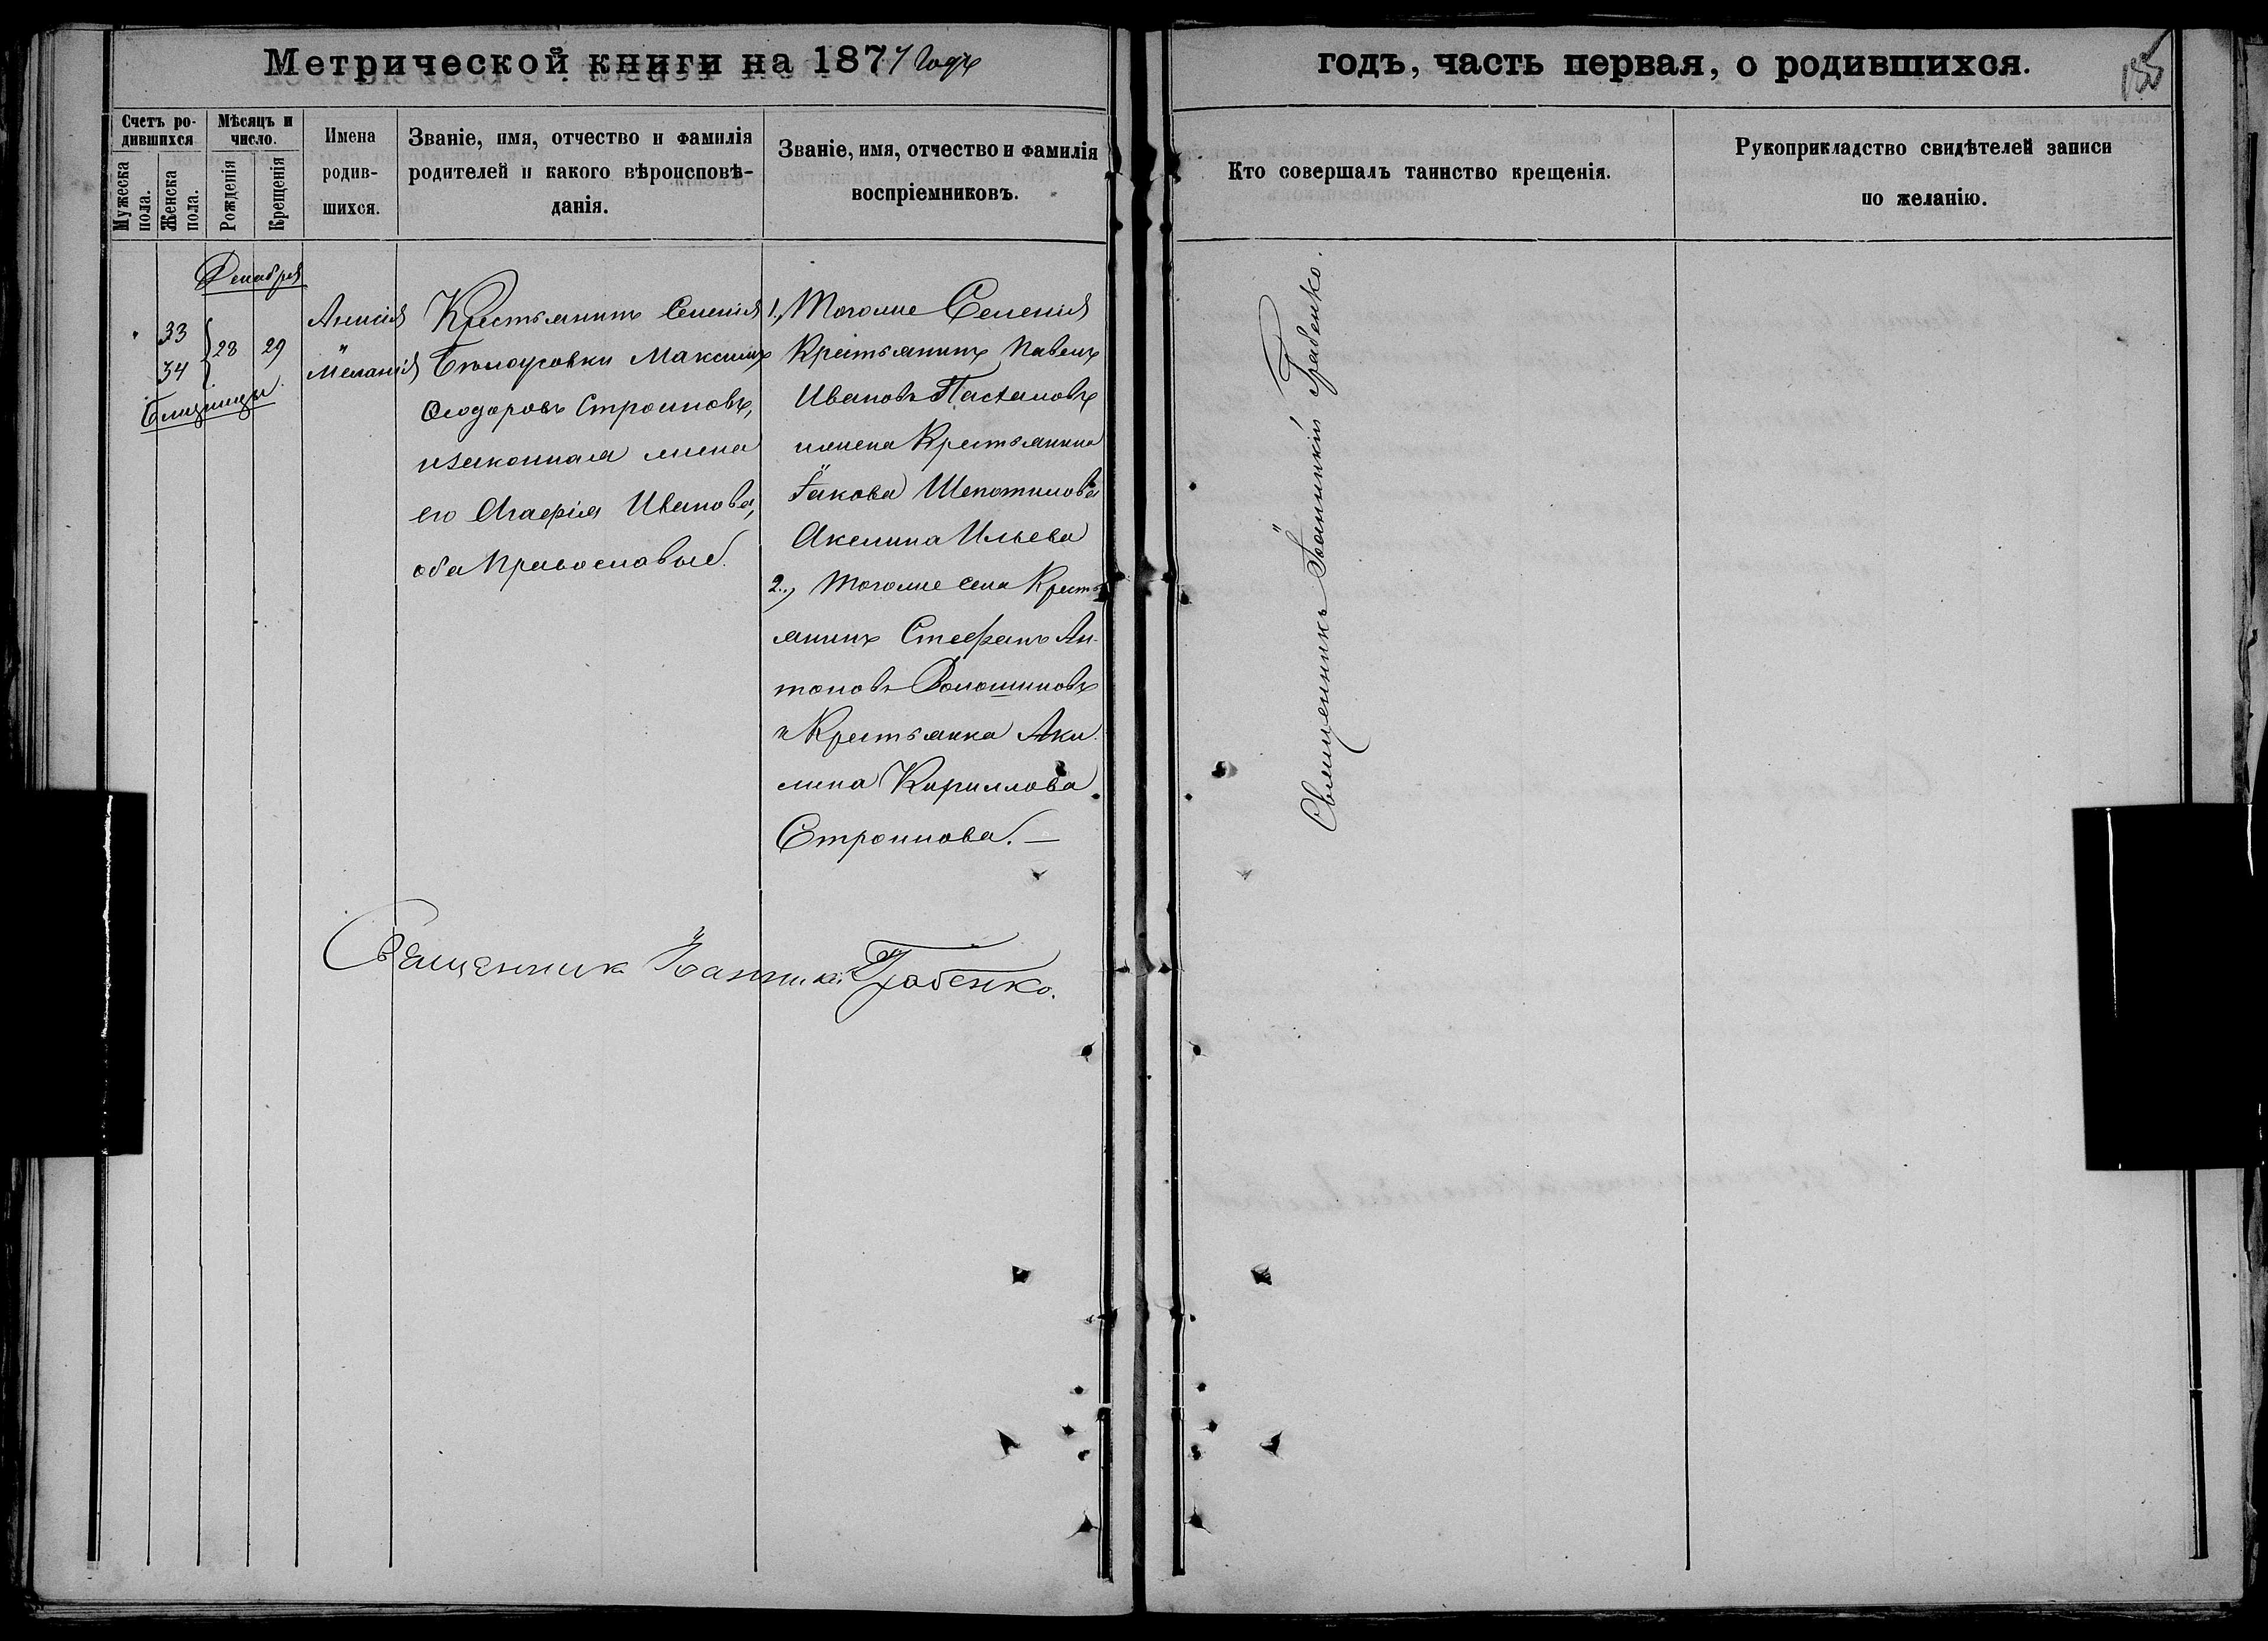 Метрической книги на 1877 годъ
годъ, часть первая, о родившихся.
155
Счетъ родившихся
Мужеска пола.
Женска пола.
Мѣсяцъ и число.
Рожденія
Крещенія
Имена родившихся.
Званіе, имя, отчество и фамилія
родителей и какого вѣроисповѣ-
данія.
Званіе, имя, отчество и фамилія
воспріемниковъ.
Кто совершалъ таинство крещенія.
Рукоприкладство свидѣтелей записи
по желанію.
Декабря
33
34
28
29
Близницы
Анисія
Меланія
Крестьянинъ Селенія
Бѣлоусовки Максимъ
Ѳеодоровъ Строиновъ,
изаконная жена
его Агафія Иванова,
оба Православные.
1., Тогоже Селенія
Крестьянинъ Павелъ
Ивановъ
ижена Крестьянина
Іакова Шепотилова
Акилина Ильева
2., Тогоже села Кресть
янинъ Стефанъ Ан-
тоновъ Волошиновъ
и Крестьянка Аки
лина Кириллова
Строинова. —
Священникъ Іоанникій Грабенко.
Священникъ Іоанникій Грабенко.